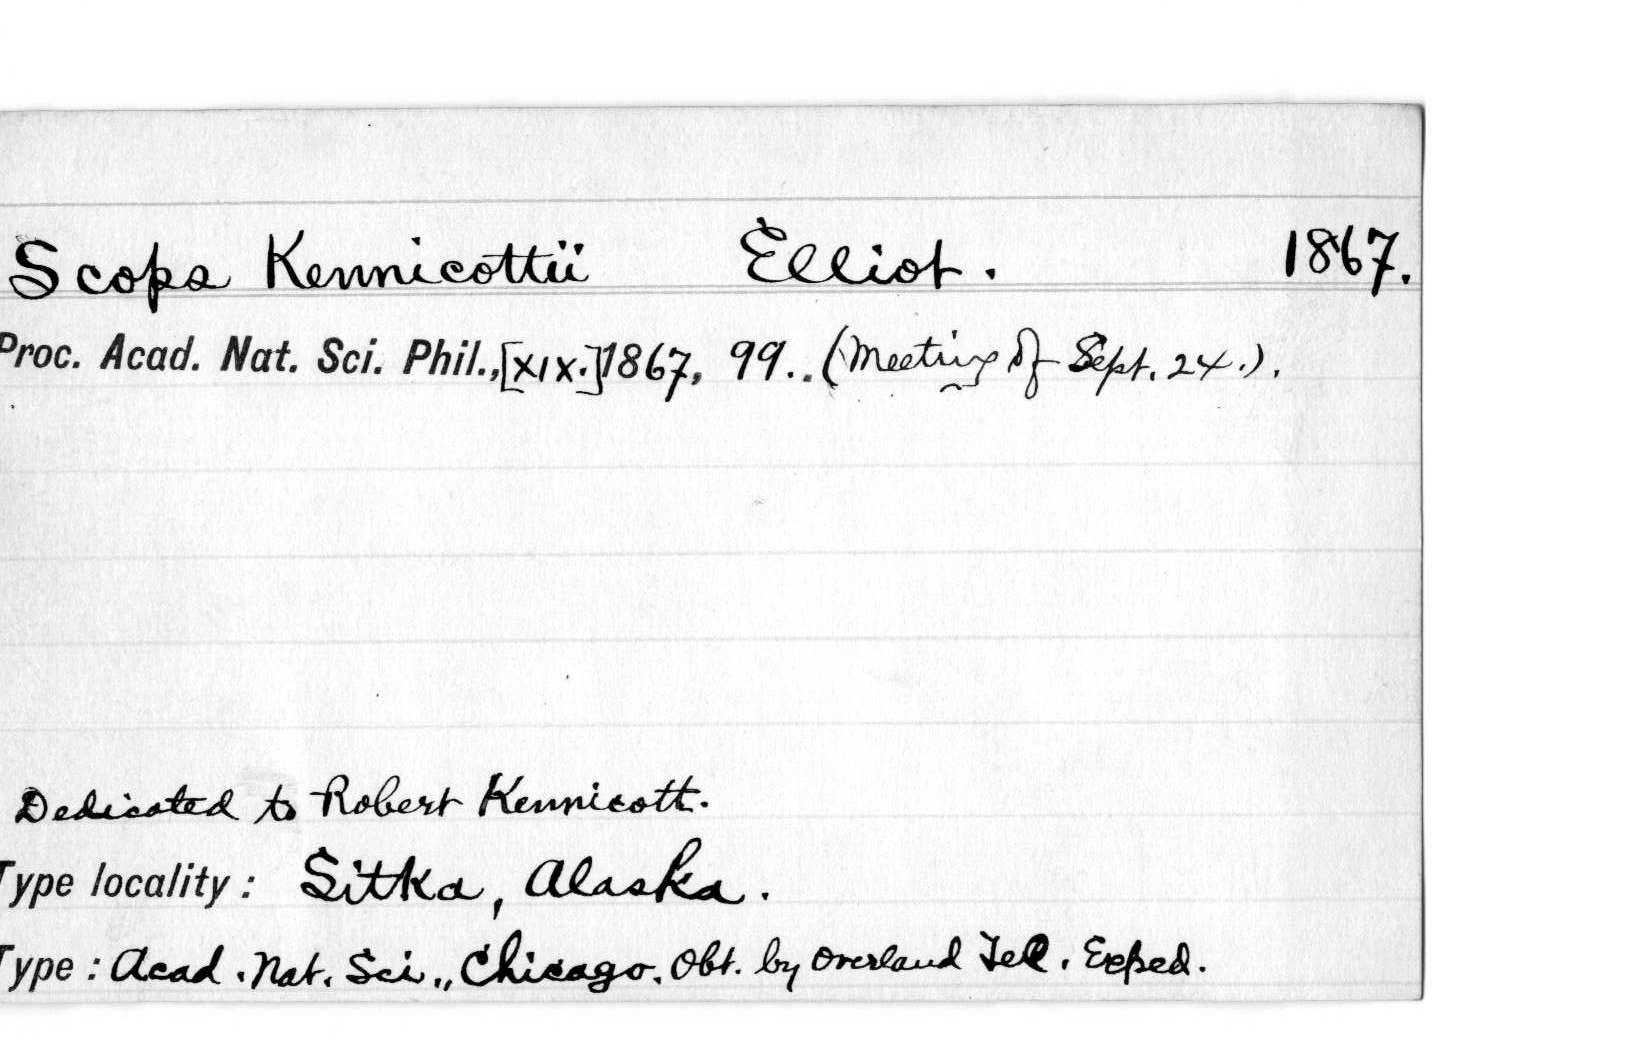 Scops Kennicottii Elliot. 1867.
Proc. Acad. Nat. Sci. Phil., [XIX.] 1867, 99.. (Meeting of Sept. 24.).
Dedicated to Robert Kennicott.
Type locality: Sitka, Alaska.
Type: Acad. Nat. Sci., Chicago. Obt. by Overland Tel. Exped.